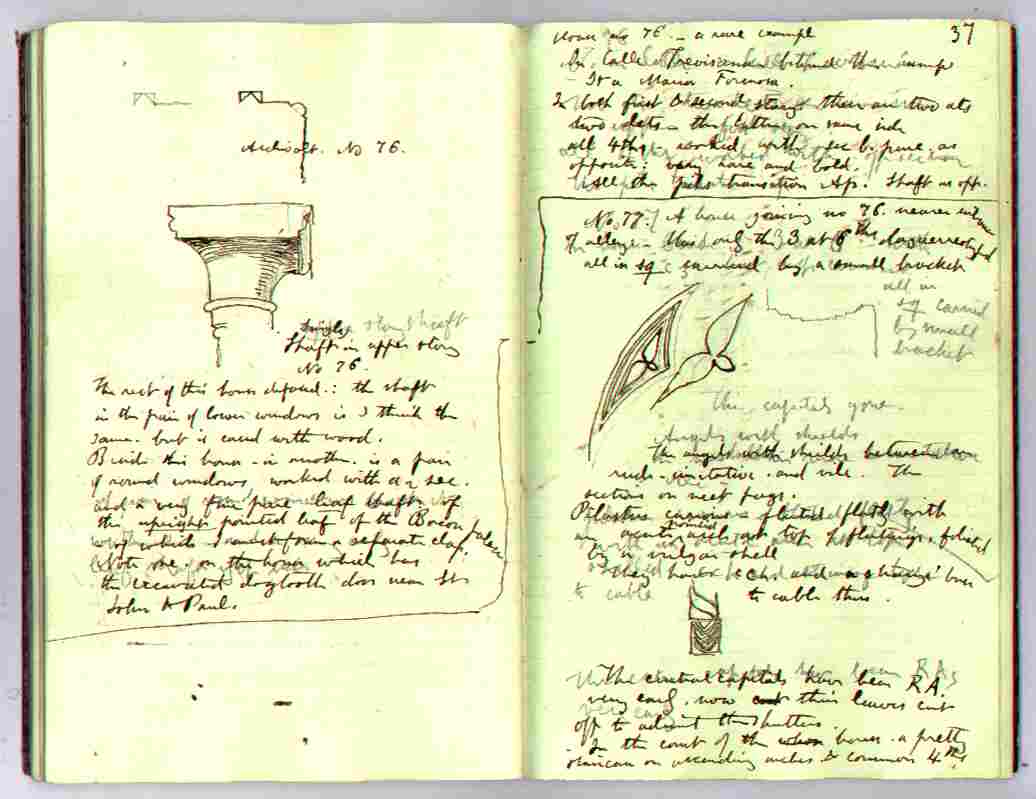 Archivolt. No 76.
Single story shaft
Shaft in upper story
No 76.
The rest of this house defaced: the shaft
in the pair of lower windows is I think the
same. but is cased with wood.
Beside this house - in another. is a pair
of round windows worked with a sec.
and a very fine pure leaf shaft. of
the upright pointed leaf of the
of which I must form a separate class.
Note one. on the house which has
the excavated dogtooth door near St
John & Paul.
37
House no 76. - a rare example
In Calle Trevisana behind the
Sta Maria Formosa.
In both first & second story there are two
two - the latter on same side
all 4ths worked with sec b. pure. as
opposite: very rare and bold.
All the transition Aps. Shaft as opp.
No. 77. A house joining no 76. nearer
of alley - this only the 3 at 6 the daguerreotyped
all in sq carried by a small bracket
all in
sq carried
by small
bracket
The capitals gone.
Angels with shields
The angels with shields between
rude imitative. and vile. The
sections on next page.
Pilasters curious - fluted flat with
an acute pointed arch at top of flutings, foliated
by a vulgar shell
They have a change' base
to cable
to cable thus.
The central capitals have been RA
very early. now their leaves cut
off to admit the shutters.
In the court of the house. a pretty
staircase on ascending arches & common 4ths